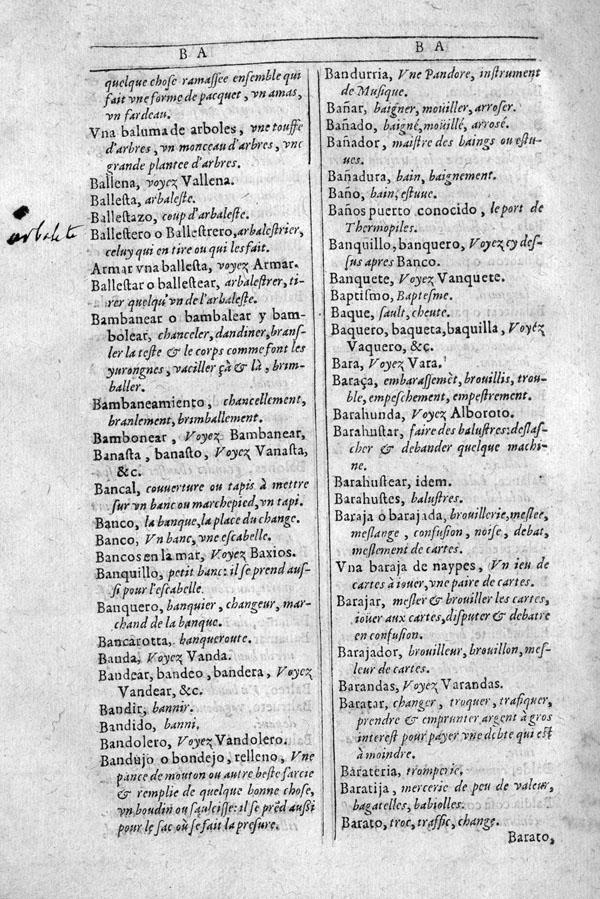 B A
quelque chose ramassée ensemble qui
fait vne forme de pacquet, vn amas,
vn fardeau.
Vna baluma de arboles, vne touffe
d'arbres, vn monceau d'arbres, vne
grande plantee d'arbres.
Ballena, voyez Vallena.
Ballesta, arbaleste.
Ballestazo, coup d'arbaleste.
arbalete
Ballestero o Ballestrero, arbalestrier,
celuy qui en tire ou qui les fait.
Armar vna ballesta, voyez Armar.
Ballestar o ballestear, arbalestrer, ti-
rer quelqu'vn de l'arbaleste.
Bambanear o bambalear y bam-
bolear, chanceler, dandiner, bransl-
ler la teste & le corps comme font les
yurongnes, vaciller çà & là, brim-
baller.
Bambaneamiento, chancellement,
branlement, brimballement.
Bambonear, Voyez Bambanear,
Banasta, banasto, Voyez Vanasta,
&c.
Bancal, couuerture ou tapis à mettre
sur vn banc ou marchepied, vn tapi.
Banco, la banque, la place du change.
Banco, Vn banc, vne escabelle.
Bancos en la mar, Voyez Baxios.
Banquillo, petit banc: il se prend aus-
si pour l'escabelle.
Banquero, banquier, changeur, mar-
chand de la banque.
Bancarotta, banqueroute.
Banda, Voyez Vanda.
Bandear, bandeo, bandera, Voyez
Vandear, &c.
Bandir, bannir.
Bandido, banni.
Bandolero, Voyez Vandolero.
Bandujo o bondejo, relleno, Vne
pance de mouton ou autre beste farcie
& remplie de quelque bonne chose,
vn boudin ou saulcisse: il se prēd aussi
pour le sac où se fait la presure.
B A
Bandurria, Vne Pandore, instrument
de Musique.
Bañar, baigner, moüiller, arroser.
Bañado, baigné, moüillé, arrosé.
Bañador, maistre des baings ou estu-
ues.
Bañadura, bain, baignement.
Baño, bain, estuue.
Baños puerto conocido, le port de
Thermopiles.
Banquillo, banquero, Voyez cy des-
sus apres Banco.
Banquete, Voyez Vanquete.
Baptismo, Baptesme.
Baque, sault, cheute.
Baquero, baqueta, baquilla, Voyéz
Vaquero, &c.
Bara, Voyez Vara.
Baraça, embarassemēt, brouillis, trou-
ble, empeschement, empestrement.
Barahunda, Voyez Alboroto.
Barahustar, faire des balustres: deslas-
cher & debander quelque machi-
ne.
Barahustear, idem.
Barahustes, balustres.
Baraja o barajada, brouillerie, meslee,
meslange, confusion, noise, debat,
meslement de cartes.
Vna baraja de naypes, Vn ieu de
cartes à iouer, vne paire de cartes.
Barajar, mesler & brouiller les cartes,
iouer aux cartes, disputer & debatre
en confusion.
Barajador, brouilleur, brouillon, mes-
leur de cartes.
Barandas, Voyez Varandas.
Baratar, changer, troquer, trafiquer,
prendre & emprunter argent à gros
interest pour payer vne debte qui est
à moindre.
Barateria, tromperie.
Baratija, mercerie de peu de valeur,
bagatelles, babiolles.
Barato, troc, traffic, change.
Barato,